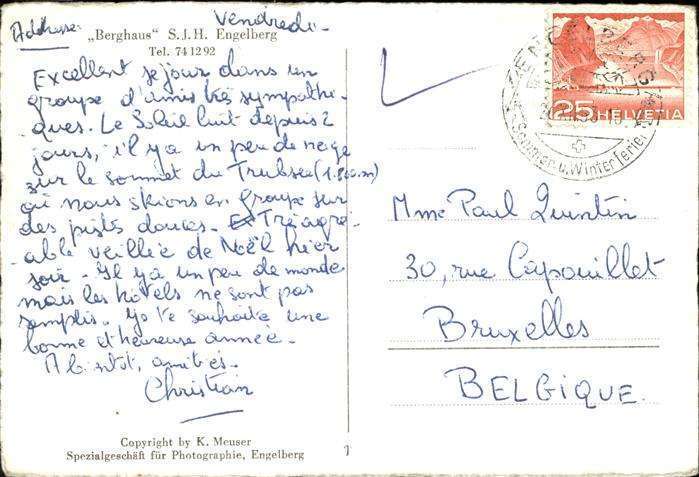 Addresse: Vendredi -
„Berghaus" S.J.H. Engelberg
Tel. 74 12 92
Excellent séjour dans un
groupe d'amis très sympathi-
ques. Le Soleil luit depuis 2
jours, il y a un peu de neige
sur le sommet du Trubsee (1.800m)
où nous skions en groupe sur
des pistes douces. Très agré-
able veillée de Noël hier
soir - Il y a un peu de monde
mais les hôtels ne sont pas
remplis. Je te souhaite une
bonne et heureuse année.
A bientôt, amitiés.
Christian
Copyright by K. Meuser
Spezialgeschäft für Photographie, Engelberg
1
25 HELVETIA
Sommer u. Winterferien
Mme Paul Quintin
30, rue Capouillet
Bruxelles
BELGIQUE.